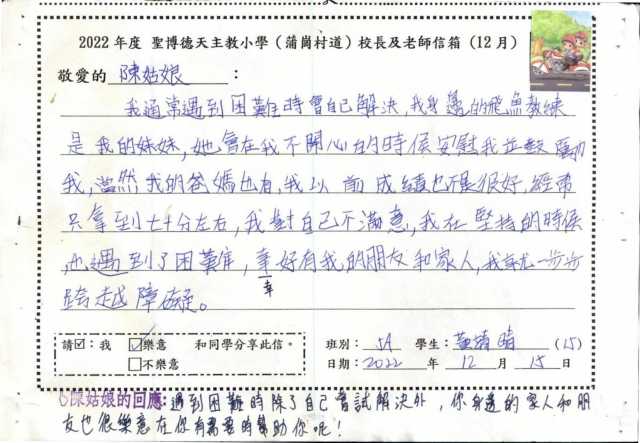 2022 年度 聖博德天主教小學（蒲崗村道）校長及老師信箱（12 月）
敬愛的 陳姑娘 ：
我通常遇到困難時會自己解決，我身邊的飛魚教練
是我的妹妹，她會在我不開心的時侯安慰我並鼓勵
我，當然我的爸媽也有，我以前成績也不是很好，經常
只拿到七十分左右，我對自己不滿意，我在堅持的時侯
，也遇到了困難，幸好有我的朋友和家人，我就一步步
幸
跨越障礙。
請☑：我 ☑樂意 和同學分享此信。 班別： 5A 學生： 晴 (15)
□不樂意 日期： 2022 年 12 月 15 日
陳姑娘的回應：遇到困難時除了自己嘗試解決外，你身邊的家人和朋
友也很樂意在你有需要時幫助你呢！